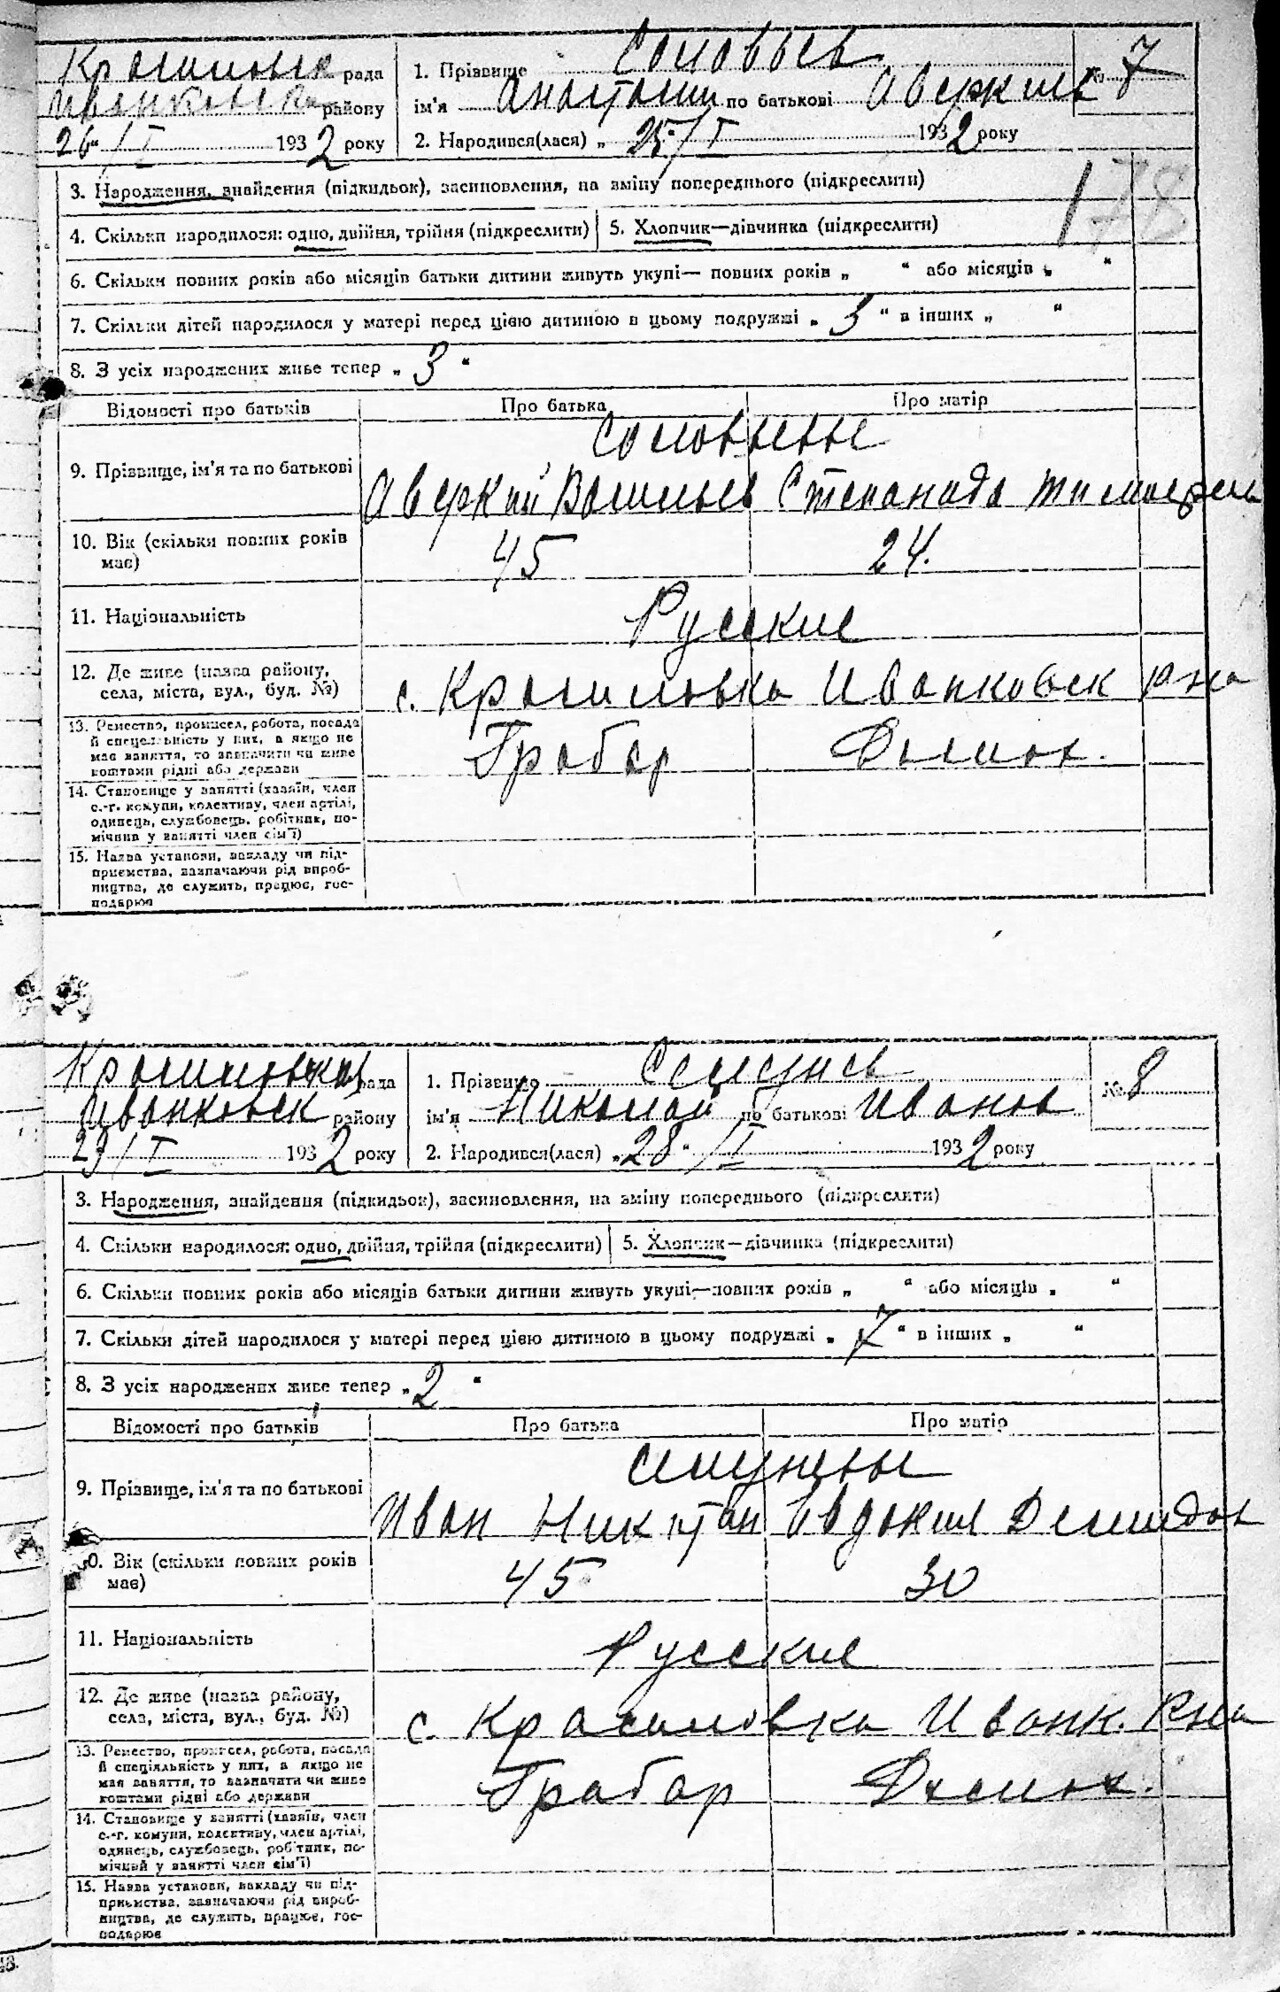 Красиловск рада
Иванковск району
26/I 1932 року
1. Прізвище Соловьев № 7
ім'я Анатолий по батькові Аверкиев
2. Народився(лася) „25"/I 1932 року
178
3. Народження, знайдення (підкидьок), засиновлення, на зміну попереднього (підкреслити)
4. Скільки народилося: одно, двійня, трійня (підкреслити) 5. Хлопчик—дівчинка (підкреслити)
6. Скільки повних років або місяців батьки дитини живуть укупі— повних років „ " або місяців „ "
7. Скільки дітей народилося у матері перед цією дитиною в цьому подружжі „ 3 " в інших „ "
8. З усіх народжених живе тепер „ 3 "
Відомості про батьків Про батька Про матір
Соловьевы
9. Прізвище, ім'я та по батькові Аверкий Васильев Степанида Тимофеев
10. Вік (скільки повних років 45 24.
має)
11. Національність Русские
12. Де живе (назва району, с. Красиловка Иванковск Рна
села, міста, вул., буд. №)
13. Ремество, промисел, робота, посада Грабар Домох.
й спеціяльність у них, а якщо не
має заняття, то зазначити чи живе
коштами рідні або держави
14. Становище у занятті (хазяїн, член
с.-г. комуни, колективу, член артілі,
одинець, службовець, робітник, по-
мічник у занятті член сім'ї)
15. Назва установи, закладу чи під-
приємства, зазначаючи рід вироб-
ництва, де служить, працює, гос-
подарює
Красиловская рада
Иванковск району
29/I 1932 року
1. Прізвище № 8
ім'я Николай по батькові Иванов
2. Народився(лася) „28"/I 1932 року
3. Народження, знайдення (підкидьок), засиновлення, на зміну попереднього (підкреслити)
4. Скільки народилося: одно, двійня, трійня (підкреслити) 5. Хлопчик—дівчинка (підкреслити)
6. Скільки повних років або місяців батьки дитини живуть укупі—повних років „ " або місяців „ "
7. Скільки дітей народилося у матері перед цією дитиною в цьому подружжі „ 7 " в інших „ "
8. З усіх народжених живе тепер „ 2 "
Відомості про батьків Про батька Про матір
9. Прізвище, ім'я та по батькові Иван Никитин Евдокия Демидов
0. Вік (скільки повних років 45 30
має)
11. Національність Русские
12. Де живе (назва району, с. Красиловка Иванк. Рна
села, міста, вул., буд. №)
13. Ремество, промисел, робота, посада Грабар Домох.
й спеціяльність у них, а якщо не
має заняття, то зазначити чи живе
коштами рідні або держави
14. Становище у занятті (хазяїн, член
с.-г. комуни, колективу, член артілі,
одинець, службовець, робітник, по-
мічний у занятті член сім'ї)
15. Назва установи, закладу чи під-
приємства, зазначаючи рід вироб-
ництва, де служить, працює, гос-
подарює